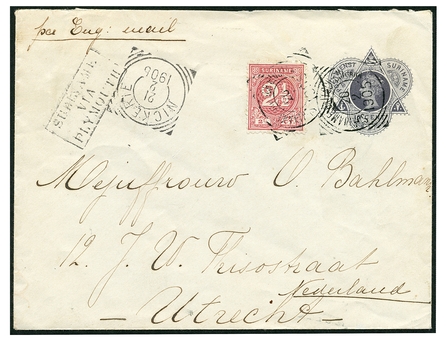 per Eng: mail
SURINAME
VIA
PLYMOUTH
NICKERIE
21
2
1906
SURINAME
2½
SURINAME
Mejuffrouw O. Bahlman
12. J. W. Frisostraat
Nederland
Utrecht